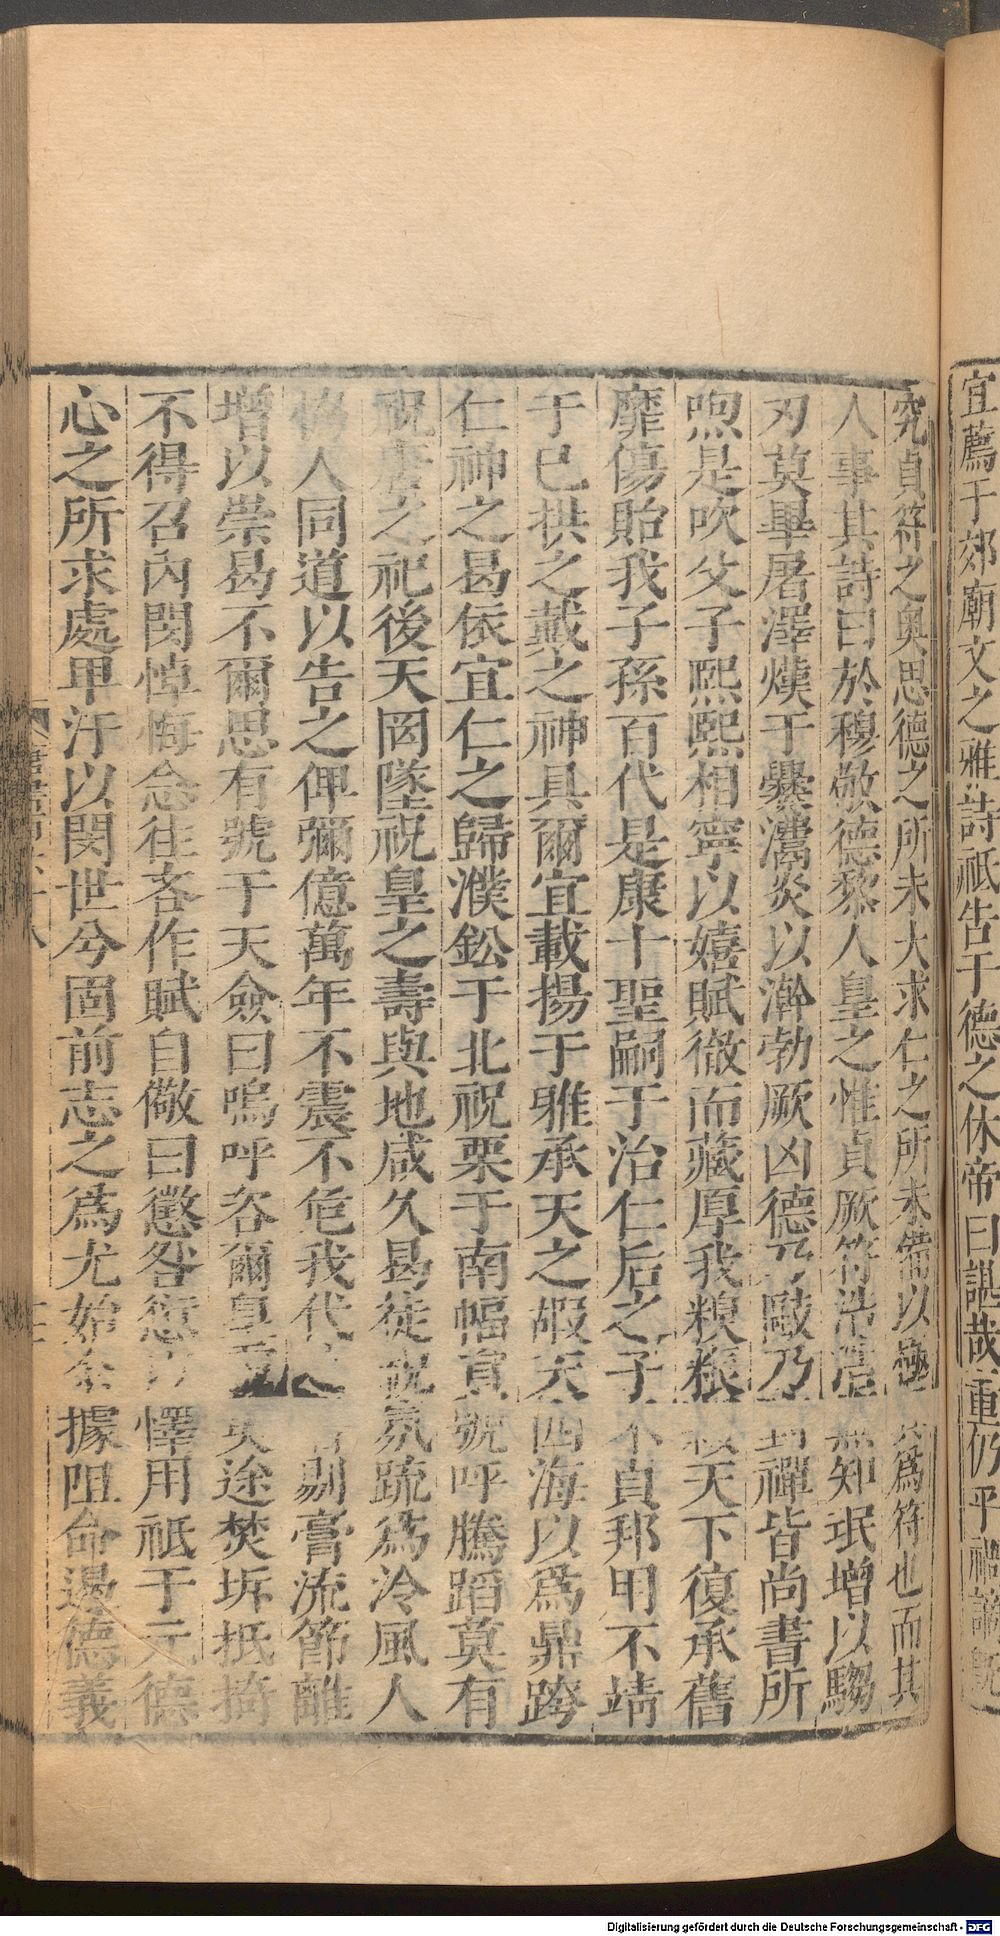 宜薦于郊廟文之雅詩祇告于德之休帝曰諶哉重仍乎禪諦既
究貞符之奥思德之所未大求仁之所未備以極爲符也而其
人事其詩曰於穆敬德黎人皇之惟貞厥符浩浩無知珉增以騶
刃莫畢屠澤熯于爨灊炎以澣勃厥凶德乃敺乃封禪皆尚書所
煦是吹父子熙熙相寧以嬉賦徹而藏厚我糗粻天下復承舊
靡傷貽我子孫百代是康十聖嗣于治仁后之子不貞邦明不靖
于已拱之戴之神具爾宜載揚于雅承天之嘏天四海以爲鼎跨
仁神之曷依宜仁之歸濮鈆于北祝栗于南幅員號呼騰蹈莫有
祝唐之祀後天罔墜祝皇之壽與地咸久曷徒祝氛疏爲泠風人
恊人同道以告之俾彌億萬年不震不危我代之剔膏流節離
增以崇曷不爾思有號于天僉曰嗚呼咨爾皇靈失途焚坼抵掎
不得召內閔悼悔念往吝作賦自儆曰懲咎愆以懌用祇于元德
心之所求處卑汙以閔世兮固前志之爲尤始余據阻命遏德義
Digitalisierung gefördert durch die Deutsche Forschungsgemeinschaft - DFG